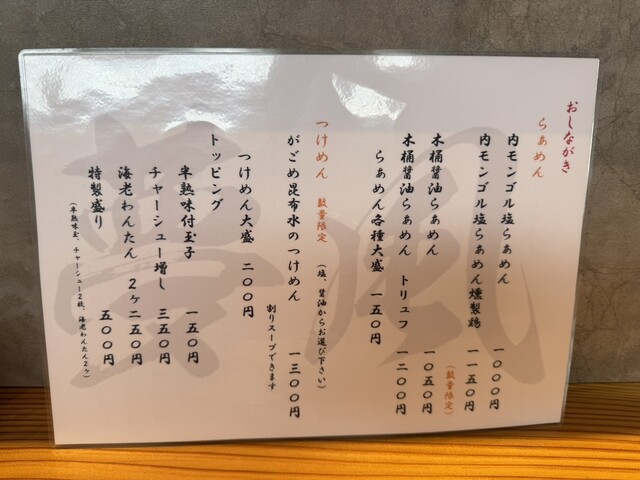 おしながき
らぁめん
内モンゴル塩らぁめん 一〇〇〇円
内モンゴル塩らぁめん燻製鶏 一一五〇円
(数量限定)
木桶醤油らぁめん 一〇五〇円
木桶醤油らぁめん トリュフ 一二〇〇円
らぁめん各種大盛 一五〇円
つけめん 数量限定 (塩、醤油からお選び下さい)
がごめ昆布水のつけめん 一三〇〇円
割りスープできます
つけめん大盛 二〇〇円
トッピング
半熟味付玉子 一五〇円
チャーシュー増し 三五〇円
海老わんたん 2ヶ 二五〇円
特製盛り 五〇〇円
(半熟味玉、チャーシュー2枚、海老わんたん2ヶ)
夢風